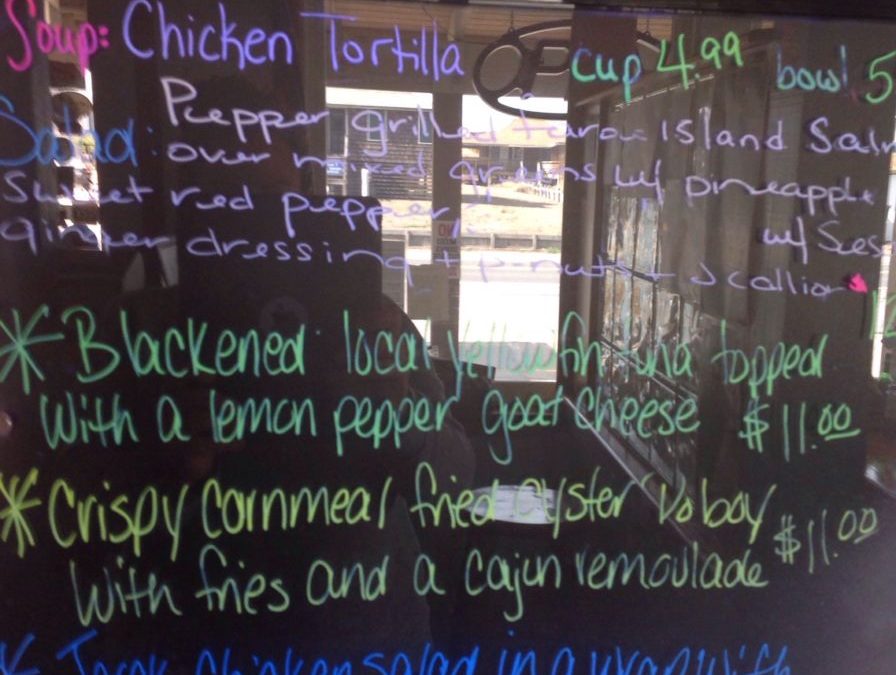 Soup: Chicken Tortilla cup 4.99 bowl 5
Salad: Pepper grilled Faroe Island Salm
over mixed greens w/ pineapple
Sweet red pepper, w/ Ses
ginger dressing + p-nuts + Scallion
* Blackened local yellowfin tuna topped
with a lemon pepper goat cheese $11.00
* Crispy cornmeal fried oyster Po boy
with fries and a cajun remoulade $11.00
* Jerk chicken salad in a wrap with